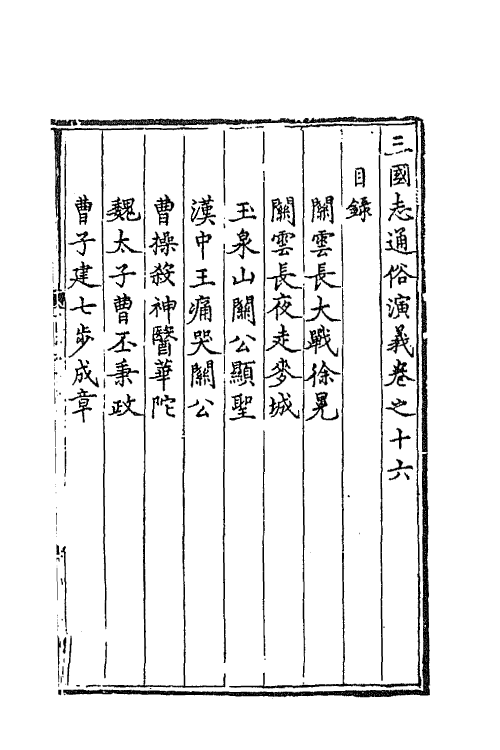 三國志通俗演義卷之十六
目錄
關雲長大戰徐晃
關雲長夜走麥城
玉泉山關公顯聖
漢中王痛哭關公
曹操殺神醫華陀
魏太子曹丕秉政
曹子建七步成章